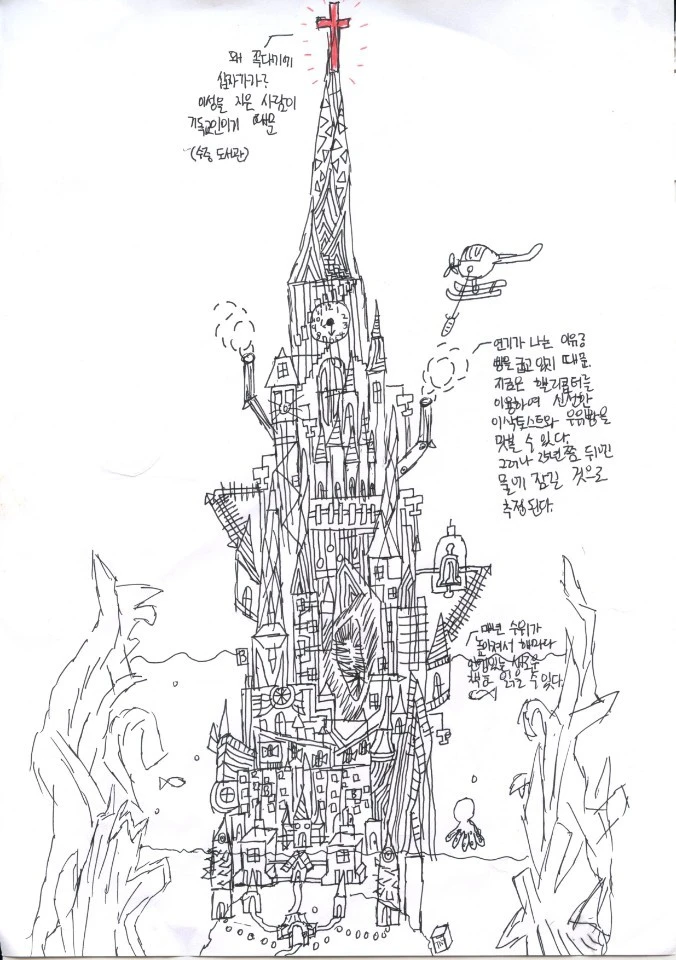 왜 꼭대기에
십자가가?
이성을 지은 사람이
기독교인이기 때문
(수중 도서관)
연기가 나는 이유는
빵을 굽고 있기 때문.
지금은 핼리콥터를
이용하여 신선한
이삭토스트와 우유빵을
맛볼 수 있다.
그러나 25년쯤 뒤엔
물에 잠길 것으로
추정된다.
매년 수위가
높아져서 해마다
새로운
책을 읽을 수 있다